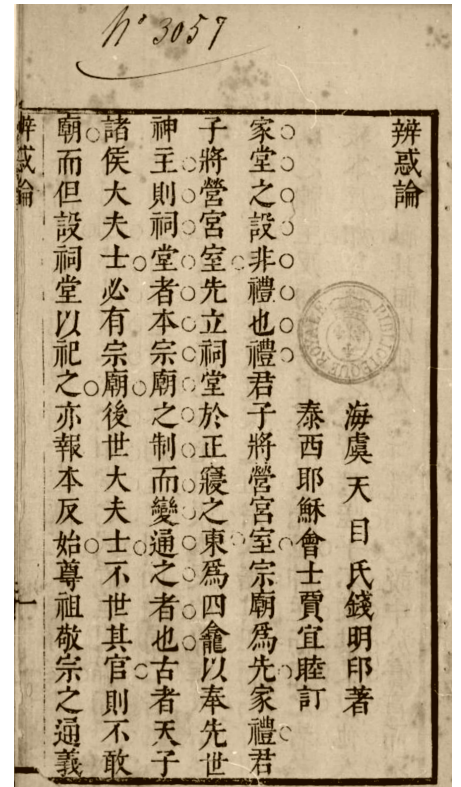 nº 3057
辨惑論
海虞天目氏錢明印著
泰西耶穌會士賈宜睦訂
家堂之設非禮也禮君子將營宮室宗廟爲先家禮君
子將營宮室先立祠堂於正寢之東爲四龕以奉先世
神主則祠堂者本宗廟之制而變通之者也古者天子
諸侯大夫士必有宗廟後世大夫士不世其官則不敢
廟而但設祠堂以祀之亦報本反始尊祖敬宗之通義
辨惑論
一